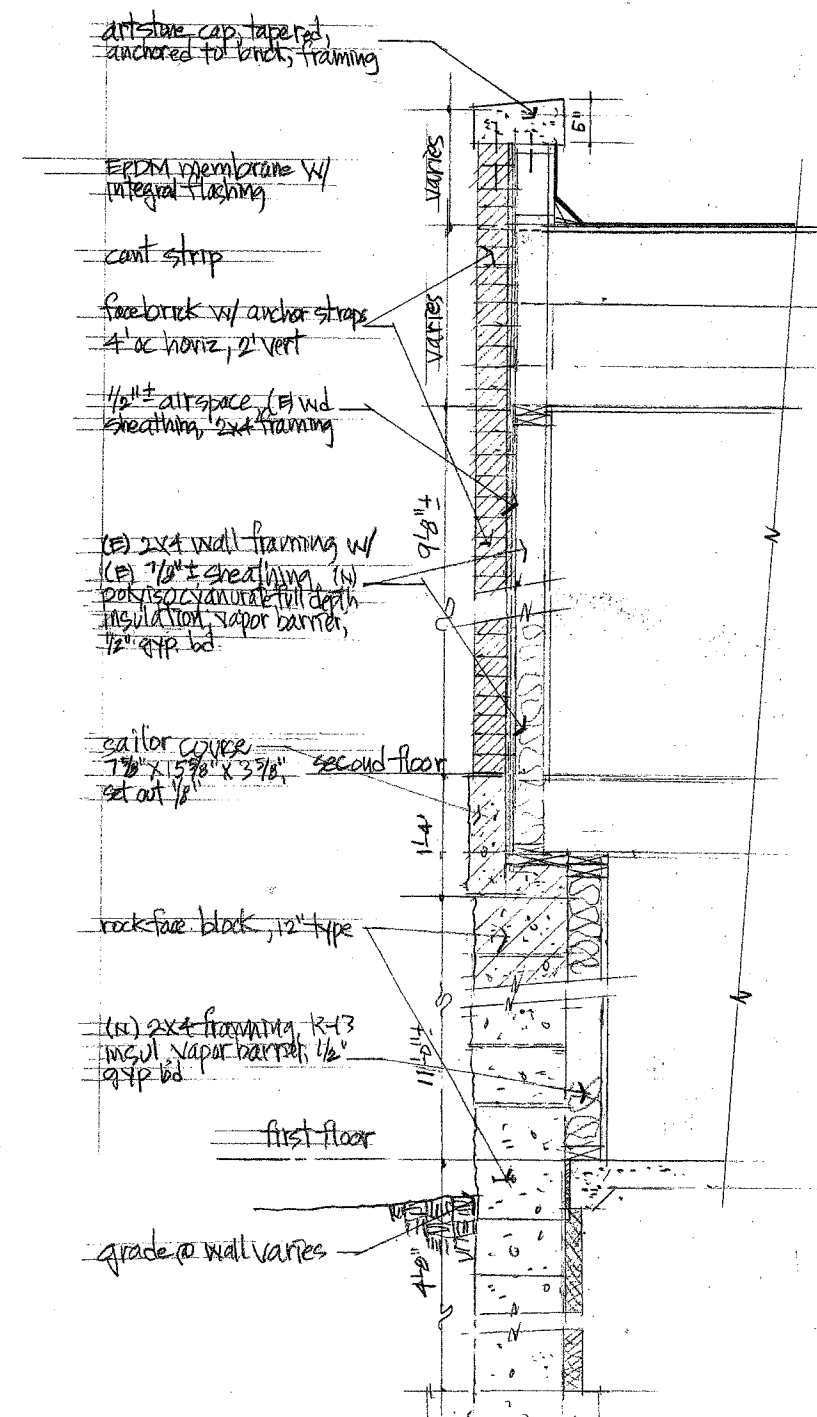 artstone cap, tapered,
anchored to brick, framing
6"
varies
EPDM membrane w/
integral flashing
cant strip
facebrick w/ anchor straps
4' oc horiz, 2' vert
varies
1/2" ± airspace, (E) wd
sheathing, 2x4 framing
9'-8" ±
(E) 2x4 wall framing w/
(E) 7/8" ± sheathing, (N)
polyisocyanurate full depth
insulation, vapor barrier,
1/2" gyp. bd
sailor course
7 5/8" x 15 5/8" x 3 5/8",
set out 1/8"
second floor
1'-4"
rockface block, 12" type
(N) 2x4 framing, R-13
insul, vapor barrier, 1/2"
gyp bd
11'-0" ±
first floor
grade @ wall varies
4'-0"